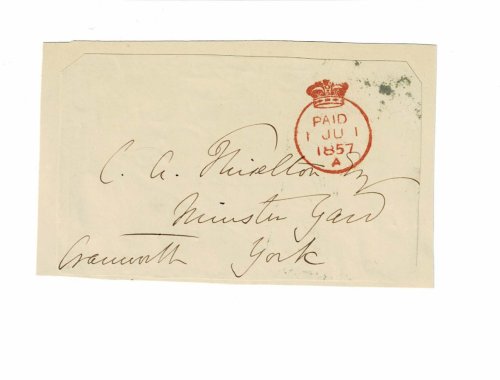 PAID
1 JU 1
1857
A
C. A. Thiselton Esq
Minster Yard
Cranworth York